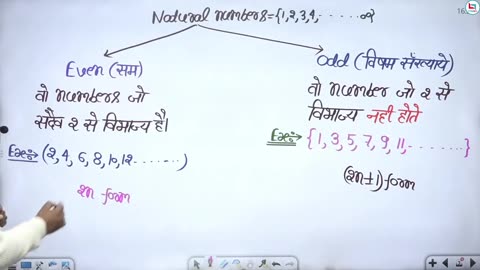 Natural numbers={1,2,3,4,......∞}
Even (सम)
वो numbers जो
सदैव 2 से विभाज्य है।
Exe:→ (2,4,6,8,10,12.......)
2n form
Odd (विषम संख्याये)
वो number जो 2 से
विभाज्य नही होते
Exe:→ {1,3,5,7,9,11,........}
(2n±1) form